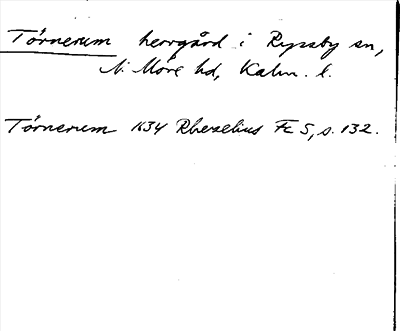 Törnerum herrgård i Ryssby sn,
N. Möre hd, Kalm. l.
Törnerum 1634 Rhezelius FC 5, s. 132.